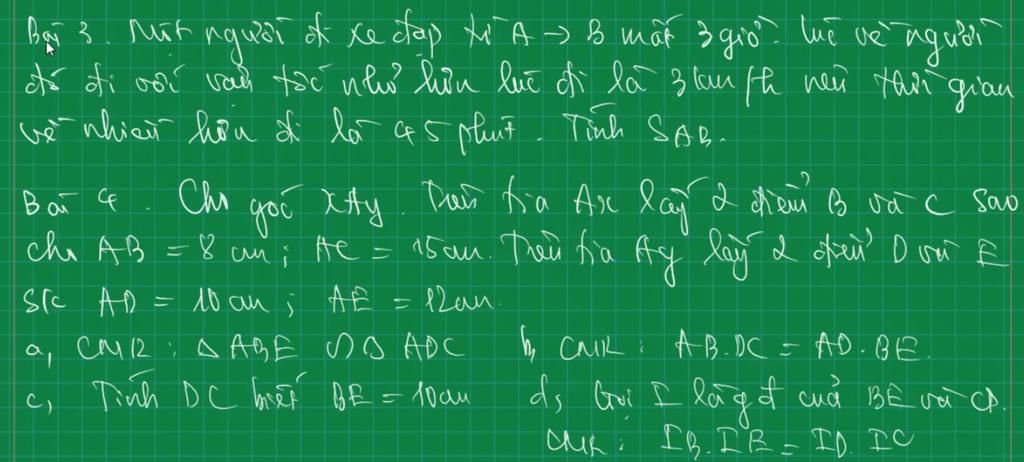 Bài 3. Một người đi xe đạp từ A → B mất 3 giờ. Lúc về người
đó đi với vận tốc nhỏ hơn lúc đi là 3 km/h nên thời gian
về nhiều hơn đi là 45 phút. Tính SAB.
Bài 4. Cho góc xAy. Trên tia Ax lấy 2 điểm B và C sao
cho AB = 8 cm; AC = 15cm. Trên tia Ay lấy 2 điểm D và E
s/c AD = 10 cm; AE = 12cm.
a, CMR: △ ABE ∽ △ ADC b, CMR: AB.DC = AD.BE.
c, Tính DC biết BE = 10cm d, Gọi I là gđ của BE và CD.
CMR: IB.IE = ID.IC